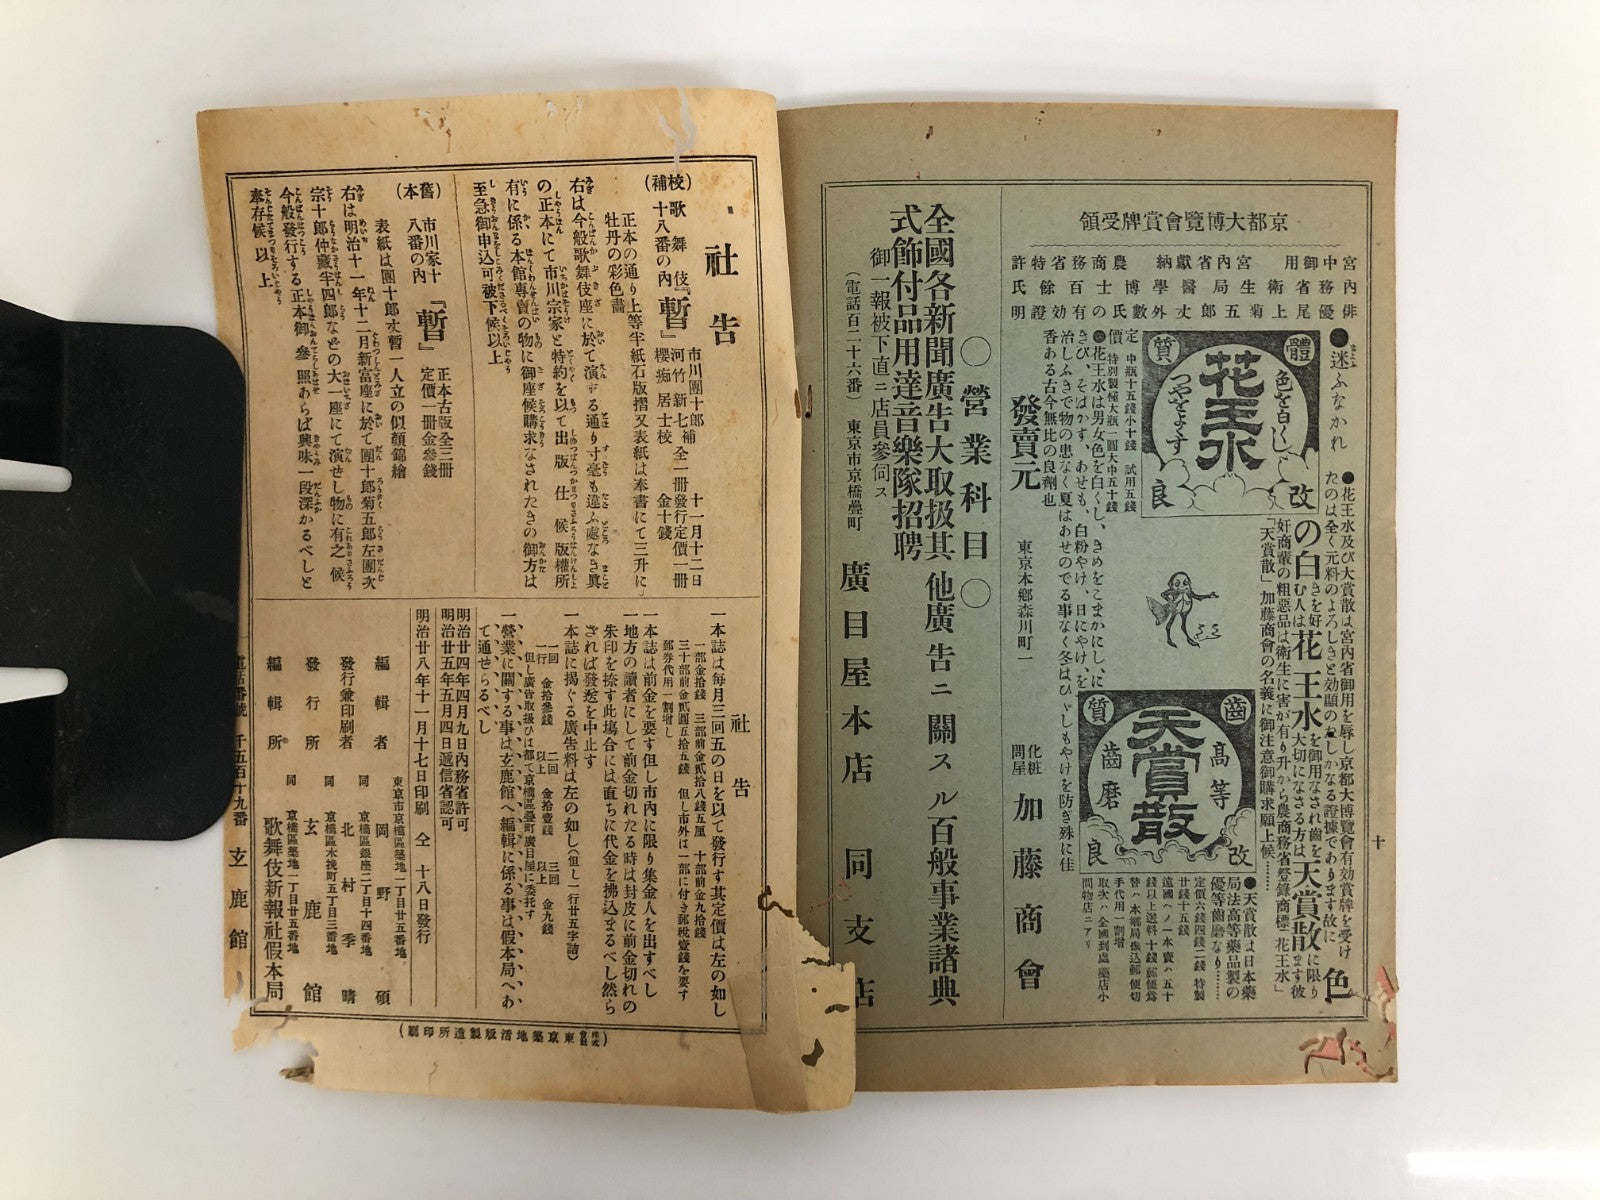 京都大博覽會賞牌受領
宮中御用 宮內省獻納 農商務省特許
內務省衛生局醫學博士百餘氏
俳優尾上菊五郎丈外數氏の有効證明
●迷ふなかれ
●花王水及び大賞散は宮內省御用を辱し京都大博覽會有効賞牌を受け
たのは全く元料のよろしきと効顯のたしかなる證據であります故に色
の白きを好む人は花王水を御用なされ齒を大切になさる方は天賞散に限ります彼
奸商輩の粗惡品は衛生に害が有り升から農商務省登錄商標「花王水」
「天賞散」加藤商會の名義に御注意御購求願上候
體質改良
花王水
色を白くし
つやをよくす
定價 中瓶十五錢小十錢 試用五錢
特別製極大瓶一圓大中五十錢
●花王水は男女色を白くし、きめをこまかにし、に
きび、そばかす、あせも、白粉やけ、日にやけ、を
治しふきで物の患なく夏はあせのでる事なく冬はひゞしもやけを防ぎ殊に佳
香ある古今無比の良劑也
齒質改良
天賞散
高等齒磨
●天賞散は日本藥
局法高等藥品製の
優等齒磨なり
定價六錢四錢二錢 特製
廿錢十五錢
遠國ヘノ一本賣ハ五十
錢以上送料十錢郵便爲
替ハ本鄕局振込郵便切
手代用一割增
取次ハ全國到處藥店小
間物店ニアリ
發賣元
東京本鄕森川町一
化粧問屋 加藤商會
○營業科目○
全國各新聞廣告大取扱其他廣告ニ關スル百般事業諸典
式飾付品用達音樂隊招聘
御一報被下直ニ店員參伺ス
(電話百二十六番) 東京市京橋疊町 廣目屋本店
同支店
十
社告
(校補)歌舞伎十八番の內『暫』
市川團十郎
河竹新七補
櫻痴居士校
十一月十二日發行
全一冊定價一冊金十錢
正本の通り上等半紙石版摺又表紙は奉書にて三升に
牡丹の彩色畵
右は今般歌舞伎座に於て演ずる通り寸毫も違ふ處なき眞
の正本にて市川宗家と特約を以て出版仕候版權所
有に係る本館專賣の物に御座候購求なされたきの御方は
至急御申込可被下候以上
(舊本)市川家十八番の內『暫』
正本古版全三冊
定價一冊金參錢
表紙は團十郎丈暫一人立の似顏錦繪
右は明治十一年十二月新富座に於て團十郎菊五郎左團次
宗十郎仲藏半四郎などの大一座にて演せし物に有之候
今般發行する正本御參照あらば興味一段深かるべしと
奉存候以上
社告
一本誌は每月三回五の日を以て發行す其定價は左の如し
一部金拾錢 三部前金貳拾八錢五厘 十部前金九拾錢
三十部前金貳圓五拾五錢 但し市外は一部に付き郵稅壹錢を要す
郵券代用一割增し
一本誌は前金を要す但し市內に限り集金人を出すべし
一地方の讀者にして前金切れたる時は封皮に前金切れの
朱印を捺す此塲合には直ちに代金を拂込まるべし然ら
ざれば發送を中止す
一本誌に揭ぐる廣告料は左の如し(但し一行廿五字詰)
一行 一回 金拾參錢 二回以上 金拾壹錢 三回以上 金九錢
但し廣告取扱ひは都て京橋區疊町廣目屋に委托す
一營業に關する事は玄鹿館へ編輯に係る事は假本局へあ
て通せらるべし
明治廿四年四月九日內務省許可
明治廿五年五月四日遞信省認可
明治廿八年十一月十七日印刷 仝 十八日發行
編輯者 東京市京橋區築地一丁目廿五番地 岡野碩
發行兼印刷者 同 京橋區銀座二丁目十四番地 北村季晴
發行所 同 京橋區木挽町五丁目三番地 玄鹿館
編輯所 同 京橋區築地一丁目廿五番地 歌舞伎新報社假本局
電話番號 千五百十九番 玄鹿館
(株式會社東京築地活版製造所印刷)